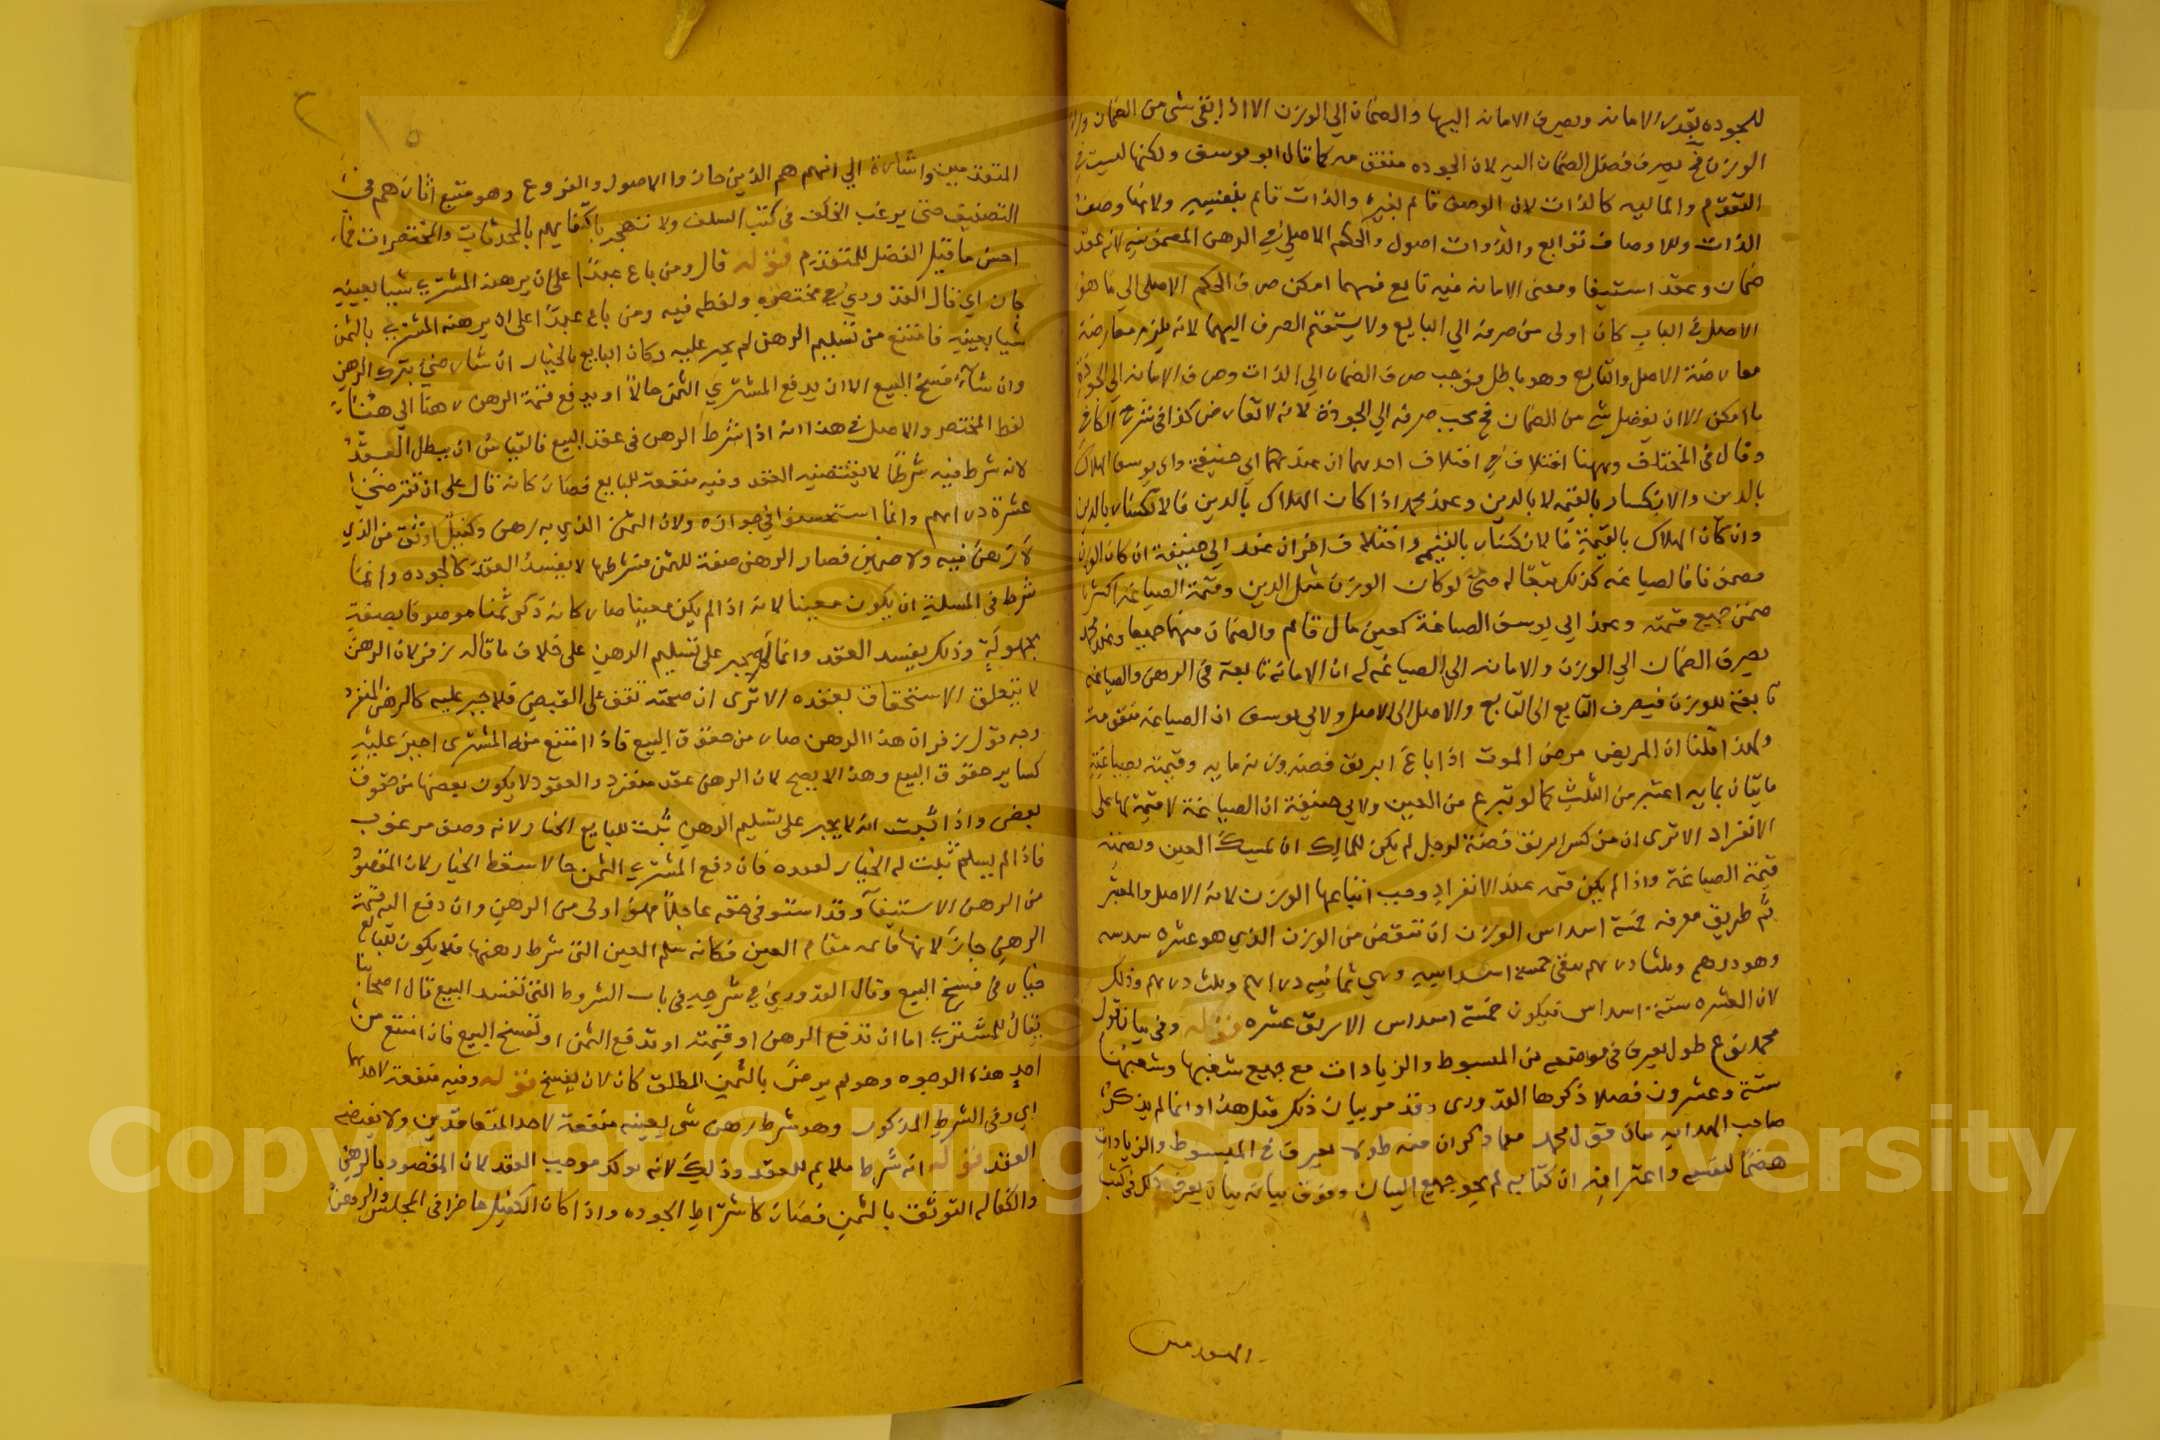 للجوده بقدر الامانه ويصرف الامانه اليها والضمان الي الوزن الا اذا بقي شي من الضمان وراء
الوزن فح يصرف فضل الضمان اليه لان الجوده متقومه كما قال ابو يوسف ولكنها ليست في
التقوم والماليه كالذات لان الوصف قايم بغيره والذات قايم بنفسه ولانها وصف
الذات وللاوصاف توابع والذوات اصول والحكم الاصلي في الرهن المضمونيه لانه عقد
ضمان وعقد استيفا ومعنى الامانه فيه تابع فمهما امكن صرف الحكم الاصلي الي ما هو
الاصل في الباب كان اولى من صرفه الي البايع ولا يستقيم الصرف اليهما لانه يلزم معارضة
معارضة الاصل والتابع وهو باطل فوجب صرف الضمان الي الذات وصرف الامانه الي الجودة
ما امكن الا ان يفضل شي من الضمان فح يجب صرفه الي الجودة لانه لا تعارض كذا في شرح الكافي
وقال في المختلف وههنا اختلاف اخر اختلاف احدهما ان عندهما اي حنيفة وابي يوسف الهلاك
بالدين والانكسار بالقيمه لا بالدين وعند محمد اذا كان الهلاك بالدين فالانكسار بالدين
وان كان الهلاك بالقيمة فالانكسار بالقيمه واختلاف اخر ان عند ابي حنيفة ان كان الوزن
مضمونا فالصياغه كذلك تبعا له حتى لو كان الوزن مثل الدين وقيمة الصياغه اكثر
ضمن جميع قيمته وعند ابي يوسف الصياغة كعين مال قايم والضمان فيهما جميعا وعند محمد
يصرف الضمان الي الوزن والامانه الي الصياغه له ان الامانه تابعة في الرهن والصياغه
تابعة للوزن فيصرف التابع الى التابع والاصل الى الاصل ولابي يوسف ان الصياغه متقومة
ولهذا قلنا ان المريض مرض الموت اذا باع ابريق فضه وزنه مايه وقيمته بصياغته
مايتان بمايه اعتبر من الثلث كما لو تبرع من العين ولابي حنيفة ان الصياغة لا قيمة لها على
الانفراد الا ترى ان من كسر ابريق فضة لرجل لم يكن للمالك ان يمسك العين ويضمنه
قيمة الصياغة واذا لم يكن قيمه عند الانفراد وجب اتباعها الوزن لانه الاصل والمعتبر
ثم طريق معرفه خمسة اسداس الوزن ان تنقص من الوزن الذي هو عشره سدسه
وهو درهم وثلثا درهم يبقى خمسة اسداسه وهي ثمانيه دراهم وثلث درهم وذلك
لان العشره ستة اسداس فيكون خمسة اسداس الابريق عشره قوله وفي بيان قول
محمد نوع طول يعرف في موضعه من المبسوط والزيادات مع جميع شعبها وشعبها
ستة وعشرون فصلا ذكرها القدوري وقد مر بيان ذلك قبل هذا وانما لم يذكر
صاحب الهدايه بيان قول محمد معما ذكر ان فيه طولا يعرف في المبسوط والزيادات
هضما لنفسه واعترافه ان كتابه لم يحو جميع البيان وفوق بيانه بيان يعرف ذلك في كتب
المتقدمين
المتقدمين واشارة الي انهم هم الذين حازوا الاصول والفروع وهو متبع اثارهم في
التصنيف حتى يرغب الخلف في كتب السلف ولا تنهجر باكتفايهم بالمحدثات والمختصرات فما
احسن ما قيل الفضل للمتقدم قوله قال ومن باع عبدا على ان يرهنه المشتري شيا بعينه
جاز اي قال القدوري في مختصره ولفظه فيه ومن باع عبدا على ان يرهنه المشتري بالثمن
شيا بعينه فامتنع من تسليم الرهن لم يجبر عليه وكان البايع بالخيار ان شا رضي بترك الرهن
وان شاء فسخ البيع الا ان يدفع المشتري الثمن حالا او يدفع قيمة الرهن رهنا الي هنا
لفظ المختصر والاصل في هذا انه اذا شرط الرهن في عقد البيع فالقياس ان يبطل العقد
لانه شرط فيه شرطا لا يقتضيه العقد وفيه منفعة للبايع فصار كانه قال على ان تقرضني
عشرة دراهم وانما استحسنوا في جوازه ولان الثمن الذي به رهن وكفيل اوثق من الذي
لا رهن فيه ولا ضمين فصار الرهن صفة للثمن فشرطها لا يفسد العقد كالجوده وانما
شرط في المسلة ان يكون معينا لانه اذا لم يكن معينا صار كانه ذكر ثمنا موصوفا بصفة
مجهولة وذلك يفسد العقد وانما لم يجبر على تسليم الرهن على خلاف ما قاله زفر لان الرهن
لا يتعلق الاستحقاق بعقده الا ترى ان صحته تقف على القبض فلا جبر عليه كالرهن المنفرد
وجه قول زفر ان هذا الرهن صار من حقوق البيع فاذا امتنع منه المشتري اجبر عليه
كساير حقوق البيع وهذا لا يصح لان الرهن عقد منفرد والعقود لا يكون بعضها من حقوق
بعض واذا ثبت انه لا يجبر على تسليم الرهن ثبت للبايع الخيار لانه وصف مرغوب
فاذا لم يسلم ثبت له الخيار لعدمه فان دفع المشتري الثمن حالا سقط الخيار لان المقصود
من الرهن الاستيفآ وقد استوفى حقه عاجلا فهو اولى من الرهن وان دفع اليه قيمة
الرهن جاز لانها قايمه مقام العين فكانه سلم العين التي شرط رهنها فلا يكون للبايع
خيار في فسخ البيع وقال القدوري في شرحه في باب الشروط التي تفسد البيع قال اصحابنا
يقال للمشتري اما ان تدفع الرهن او قيمته او تدفع الثمن او تفسخ البيع فان امتنع من
احد هذه الوجوه وهو لم يرض بالثمن المطلق كان له ان يفسخ قوله وفيه منفعة لاحدهما
اي وفي الشرط المذكور وهو شرط رهن شي بعينه منفعة لاحد المتعاقدين ولا يقتضيه
العقد قوله انه شرط ملايم للعقد وذلك لانه يوكد موجب العقد لان المقصود بالرهن
والكفاله التوثق بالثمن فصار كاشتراط الجوده واذا كان الكفيل حاضرا في المجلس والرهن
٢١٥
Copyright © King Saud University